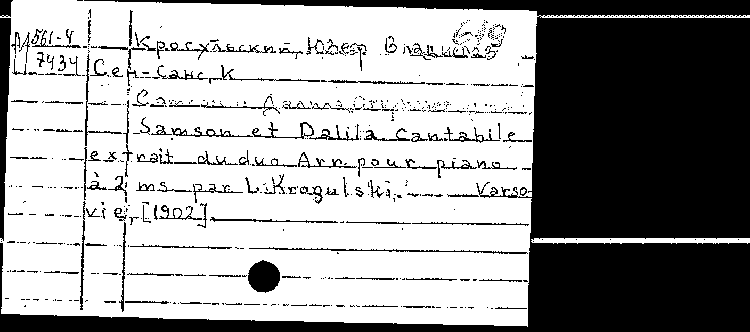 619
М 561-4
7434
Крогульский, Юзеф Владислав
Сен-Санс, К
Самсон и Далила.
Samson et Dalila cantabile
extrait du duo Arr. pour piano
à 2 ms par L. Kragulski. Varso
vie, [1902].